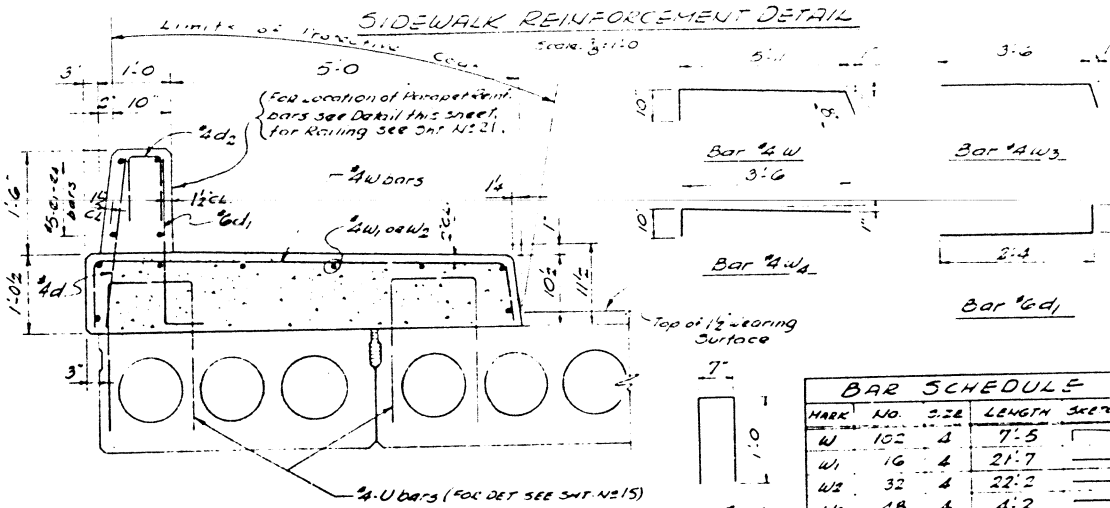 SIDEWALK REINFORCEMENT DETAIL
Limits of Protective Coat
3" 1'-0 5'-0
2" 10"
For Location of Parapet Reinf.
bars see Detail this sheet,
for Railing see Sht Nº 21.
#4d2
#4w bars
1'-6"
#5-e1-e2
bars
1½"CL
#6d1
#4w1 or w2
2"CL
1¼
1"
1'-0½
#4d
10½
11½
Top of 1½ wearing
Surface
3"
#4-U bars (FOR DET SEE SHT. Nº 15)
10"
Bar #4 W
3'-6
Bar #4 W3
3'-6
10"
Bar #4 W4
2'-4
Bar #6d1
7"
1'-0
BAR SCHEDULE
MARK NO. SIZE LENGTH
W 102 4 7'-5
W1 16 4 21'-7
W2 32 4 22'-2
48 4 4'-2